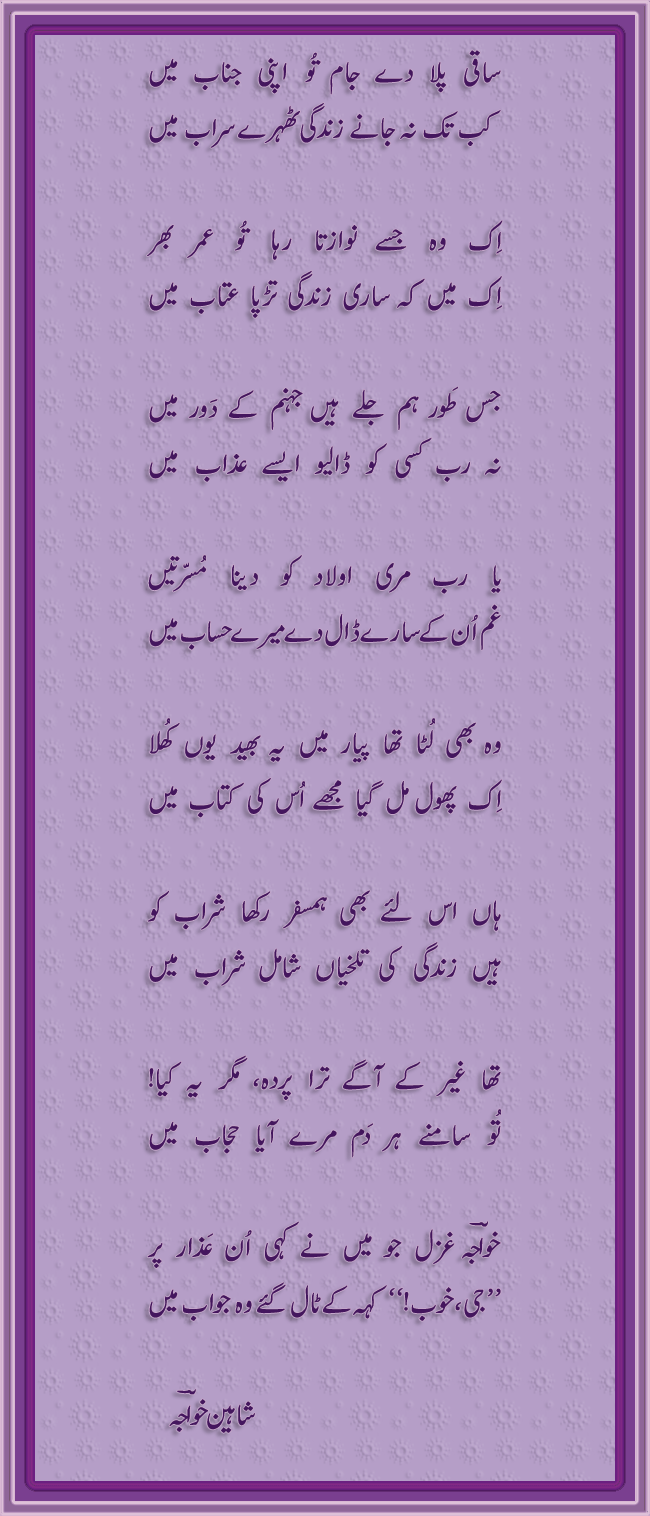 ساقی پلا دے جام تُو اپنی جناب میں
کب تک نہ جانے زندگی ٹھہرے سراب میں
اِک وہ جسے نوازتا رہا تُو عمر بھر
اِک میں کہ ساری زندگی تڑپا عتاب میں
جس طَور ہم جلے ہیں جہنم کے دَور میں
نہ رب کسی کو ڈالیو ایسے عذاب میں
یا رب مری اولاد کو دینا مُسرّتیں
غم اُن کے سارے ڈال دے میرے حساب میں
وہ بھی لُٹا تھا پیار میں یہ بھید یوں کُھلا
اِک پھول مل گیا مجھے اُس کی کتاب میں
ہاں اس لئے بھی ہمسفر رکھا شراب کو
ہیں زندگی کی تلخیاں شامل شراب میں
تھا غیر کے آگے ترا پردہ، مگر یہ کیا!
تُو سامنے ہر دَم مرے آیا حجاب میں
خواجہؔ غزل جو میں نے کہی اُن عَذار پر
’’جی، خوب!‘‘ کہہ کے ٹال گئے وہ جواب میں
شاہین خواجہؔ